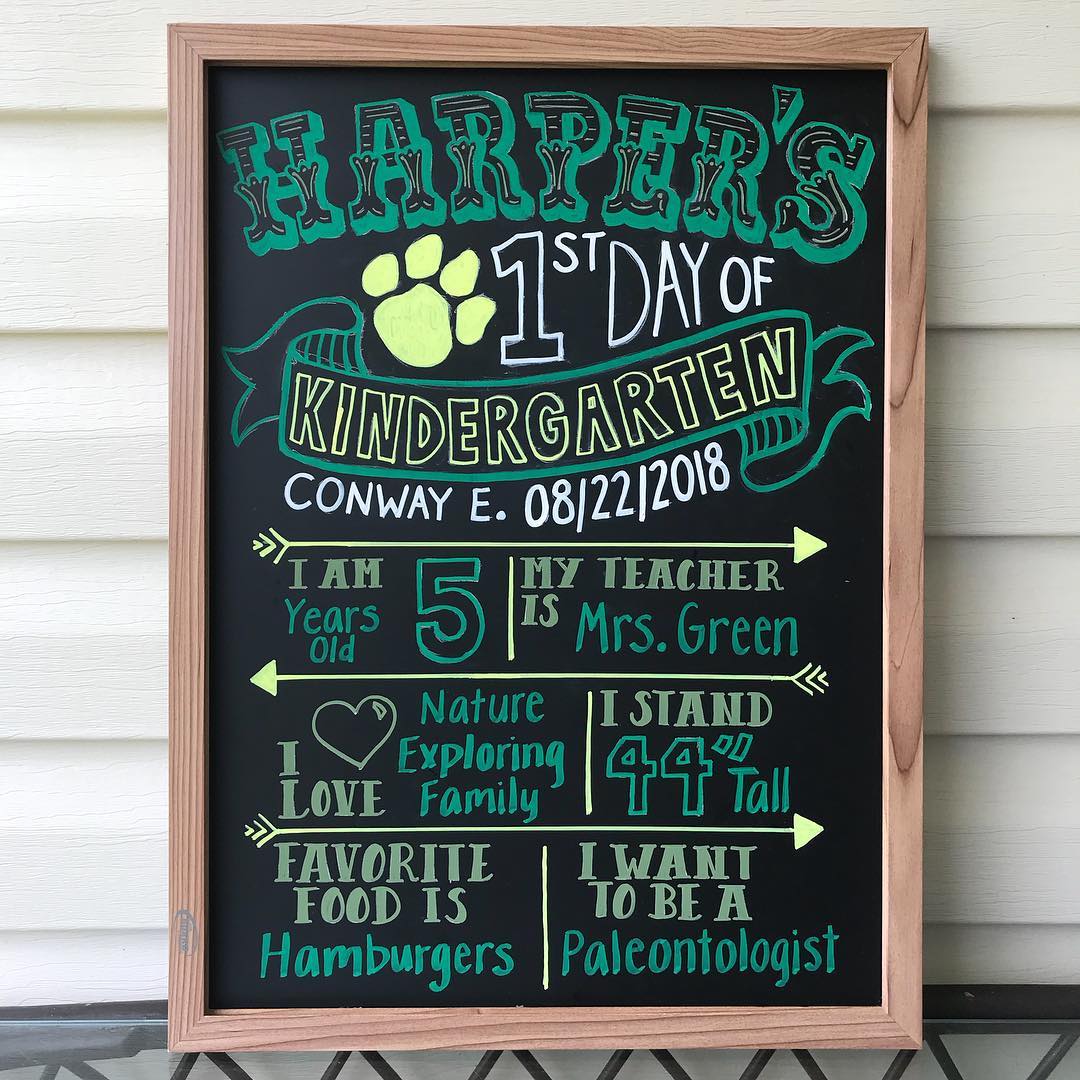 HARPER'S
1ST DAY OF
KINDERGARTEN
CONWAY E. 08/22/2018
I AM 5 Years Old
MY TEACHER IS Mrs. Green
I LOVE
Nature
Exploring
Family
I STAND
44" Tall
FAVORITE
FOOD IS
Hamburgers
I WANT
TO BE A
Paleontologist